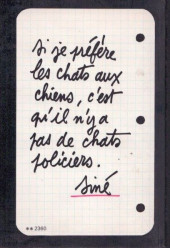 Si je préfère
les chats aux
chiens, c'est
qu'il n'y a
pas de chats
policiers.
Siné
★★ 2360